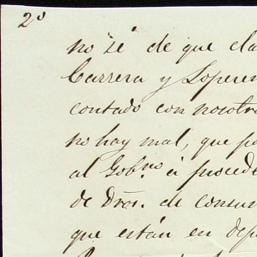 2º
no sé de que cla
Carrera y Loperen
contado con nosotro
no hay mal, que po
al Gobno á procede
de Dros. de consu
que están en dep